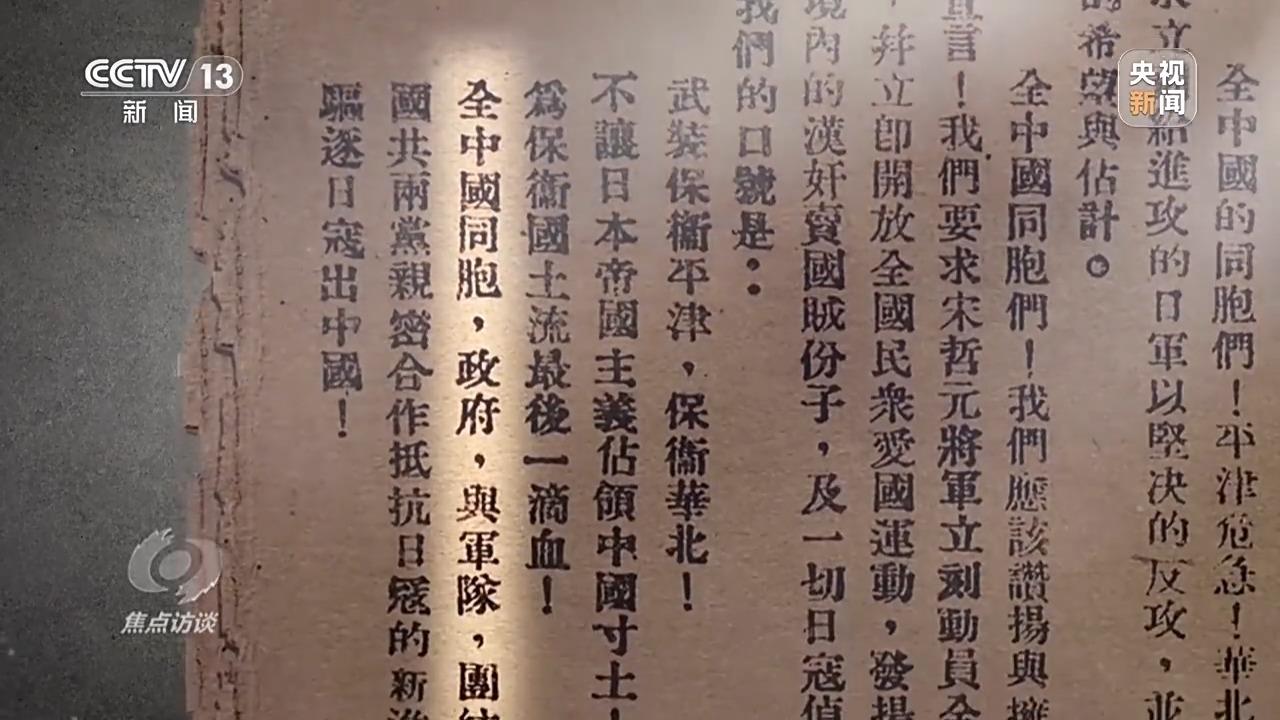 CCTV 13
新闻
央视
新闻
全中國的同胞們！平津危急！華北
立
給進攻的日軍以堅决的反攻，並
的希望與佔計。
全中國同胞們！我們應該讚揚與擁
宣言！我們要求宋哲元將軍立刻動員全
，并立卽開放全國民衆愛國運動，發揚
境內的漢奸賣國賊份子，及一切日寇偵
我們的口號是：
武裝保衞平津，保衞華北！
不讓日本帝國主義佔領中國寸土！
爲保衞國土流最後一滴血！
全中國同胞，政府，與軍隊，團結
國共兩黨親密合作抵抗日寇的新進
驅逐日寇出中國！
焦点访谈